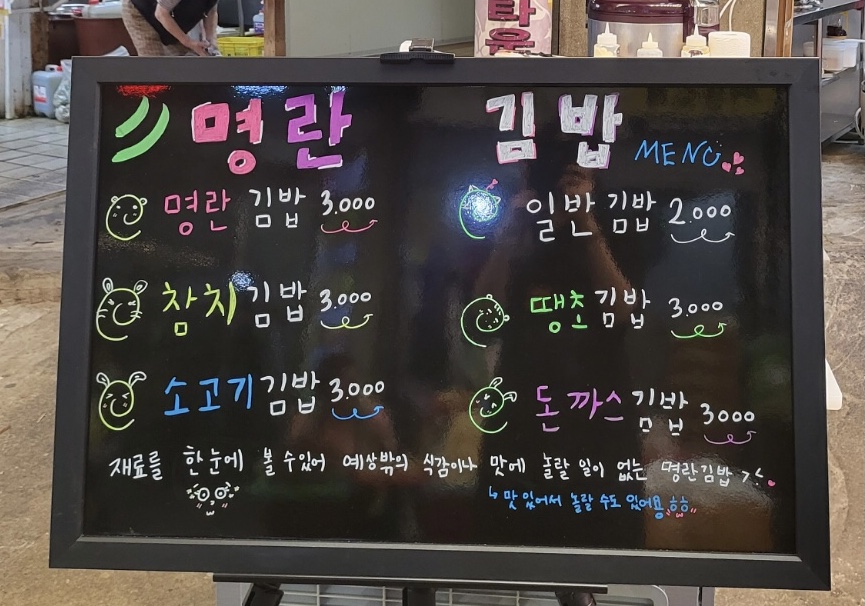 타운
명란 김밥 MENU
명란 김밥 3.000
일반 김밥 2.000
참치 김밥 3.000
땡초 김밥 3.000
소고기 김밥 3.000
돈까스 김밥 3000
재료를 한눈에 볼 수 있어 예상밖의 식감이나 맛에 놀랄 일이 없는 명란김밥 >.<
↳ 맛있어서 놀랄 수도 있어용 ㅎㅎ